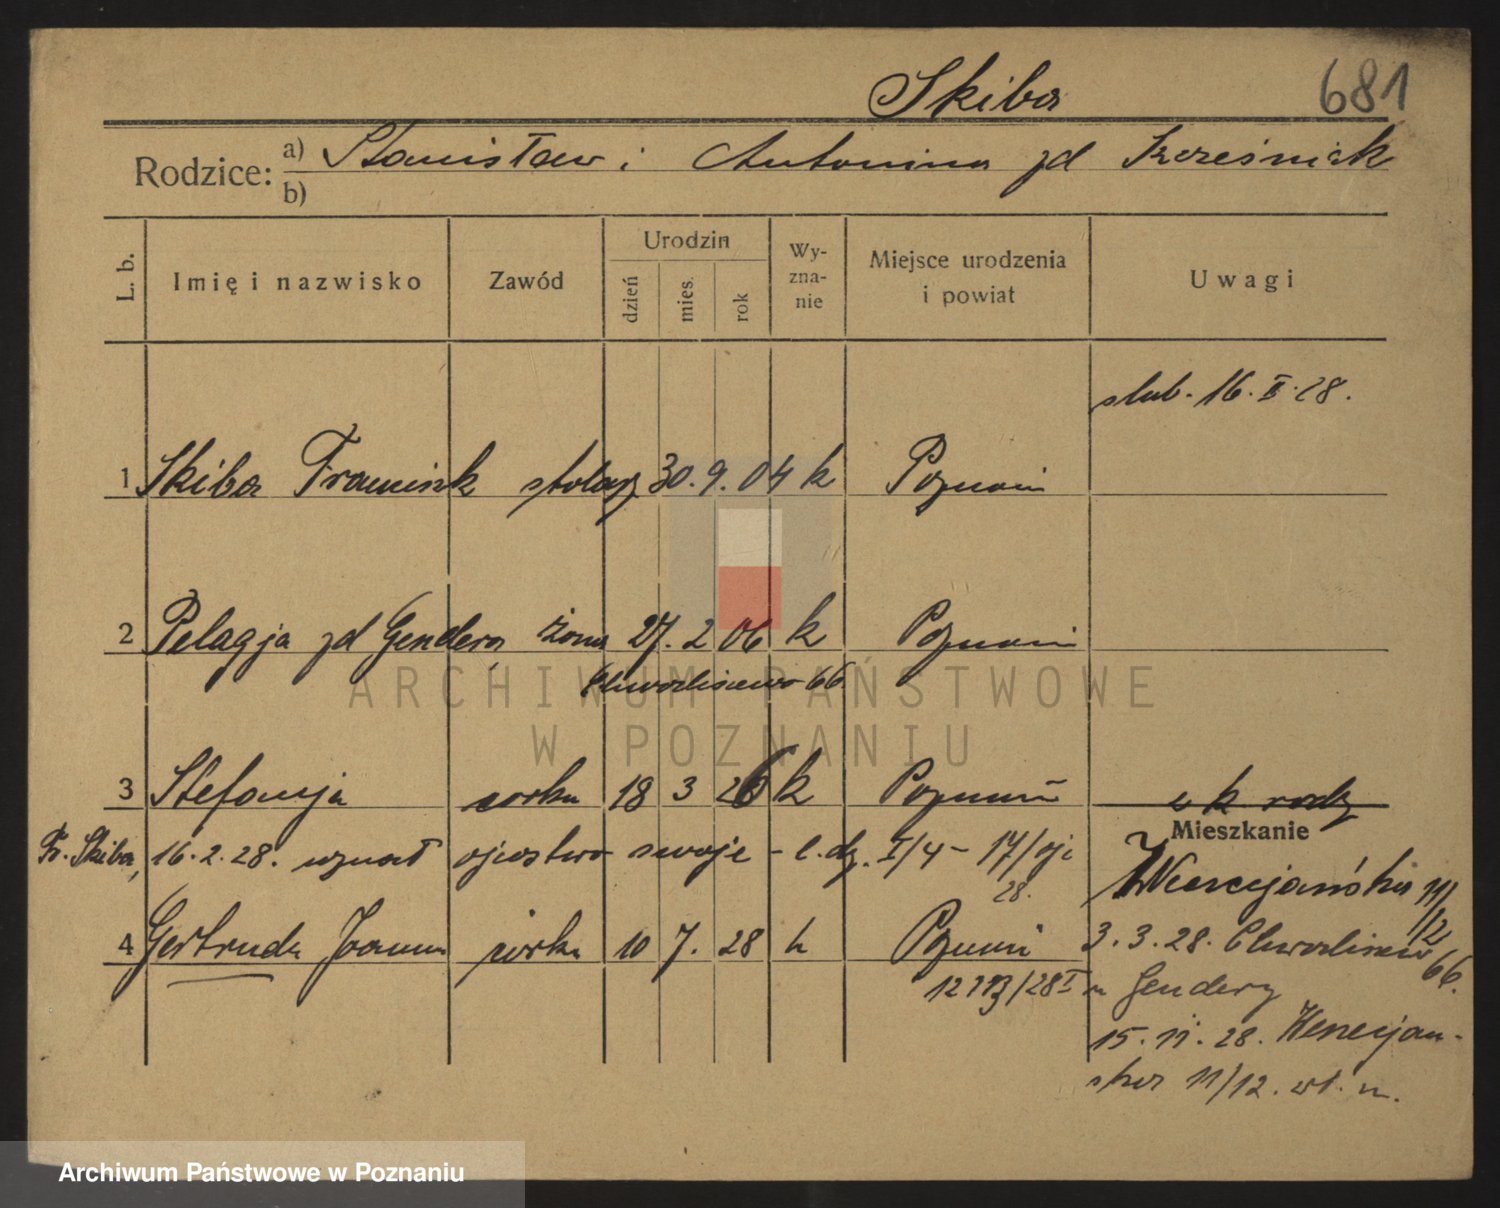 Skiba 681
Rodzice: a) Stanisław i Antonina zd Szcześniak
b)
L. b. Imię i nazwisko Zawód Urodzin dzień mies. rok Wy-zna-nie Miejsce urodzenia i powiat Uwagi
slub. 16. II. 28.
1 Skiba Franciszek stolarz 30. 9. 04 k Poznań
2 Pelagja zd Gendera żona 27. 2 06 k Poznań
Chwaliszewo 66.
3 Stefanja córka 18 3 26 k Poznań
Mieszkanie
Fr. Skiba, 16. 2. 28. uznał ojcostwo swoje - l. dz. I/4 - 17/
28.
Wenecjańska 11/12
4 Gertruda Joanna córka 10 7. 28 k Poznań
3. 3. 28. Chwaliszewo 66.
u Gendery
15. 11. 28. Wenecjań-
ska 11/12. wł. m.
ARCHIWUM PAŃSTWOWE
W POZNANIU
Archiwum Państwowe w Poznaniu